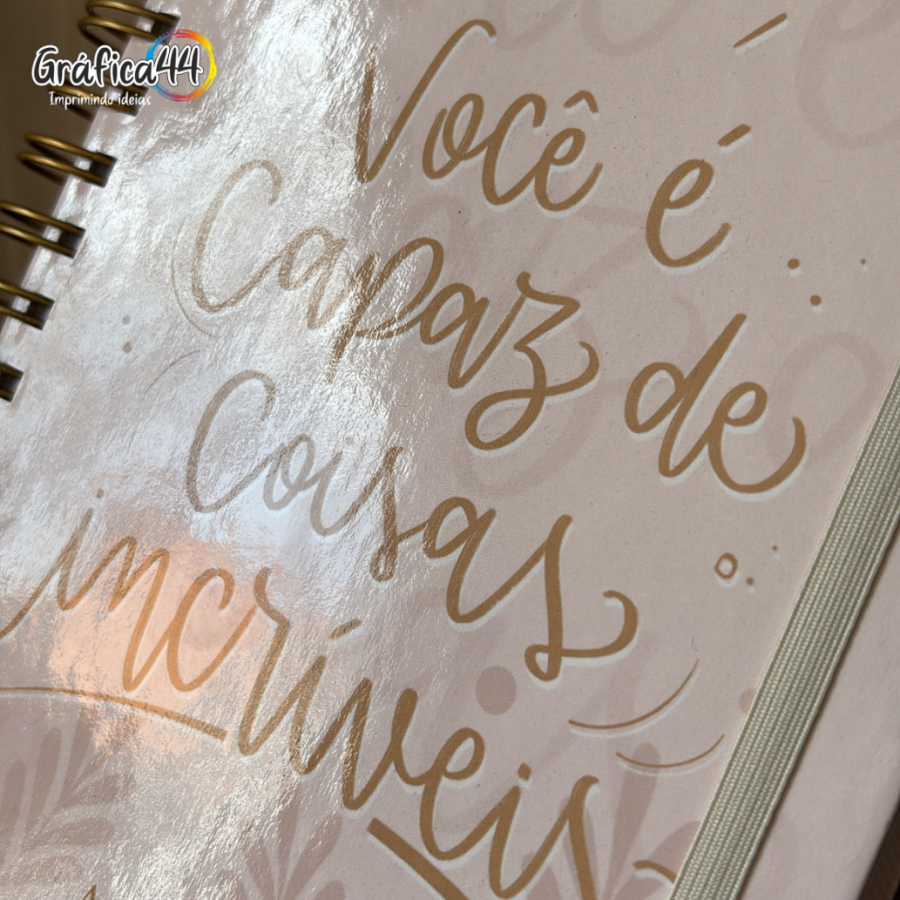 Gráfica44
Imprimindo ideias
Você é
Capaz de
Coisas
incríveis